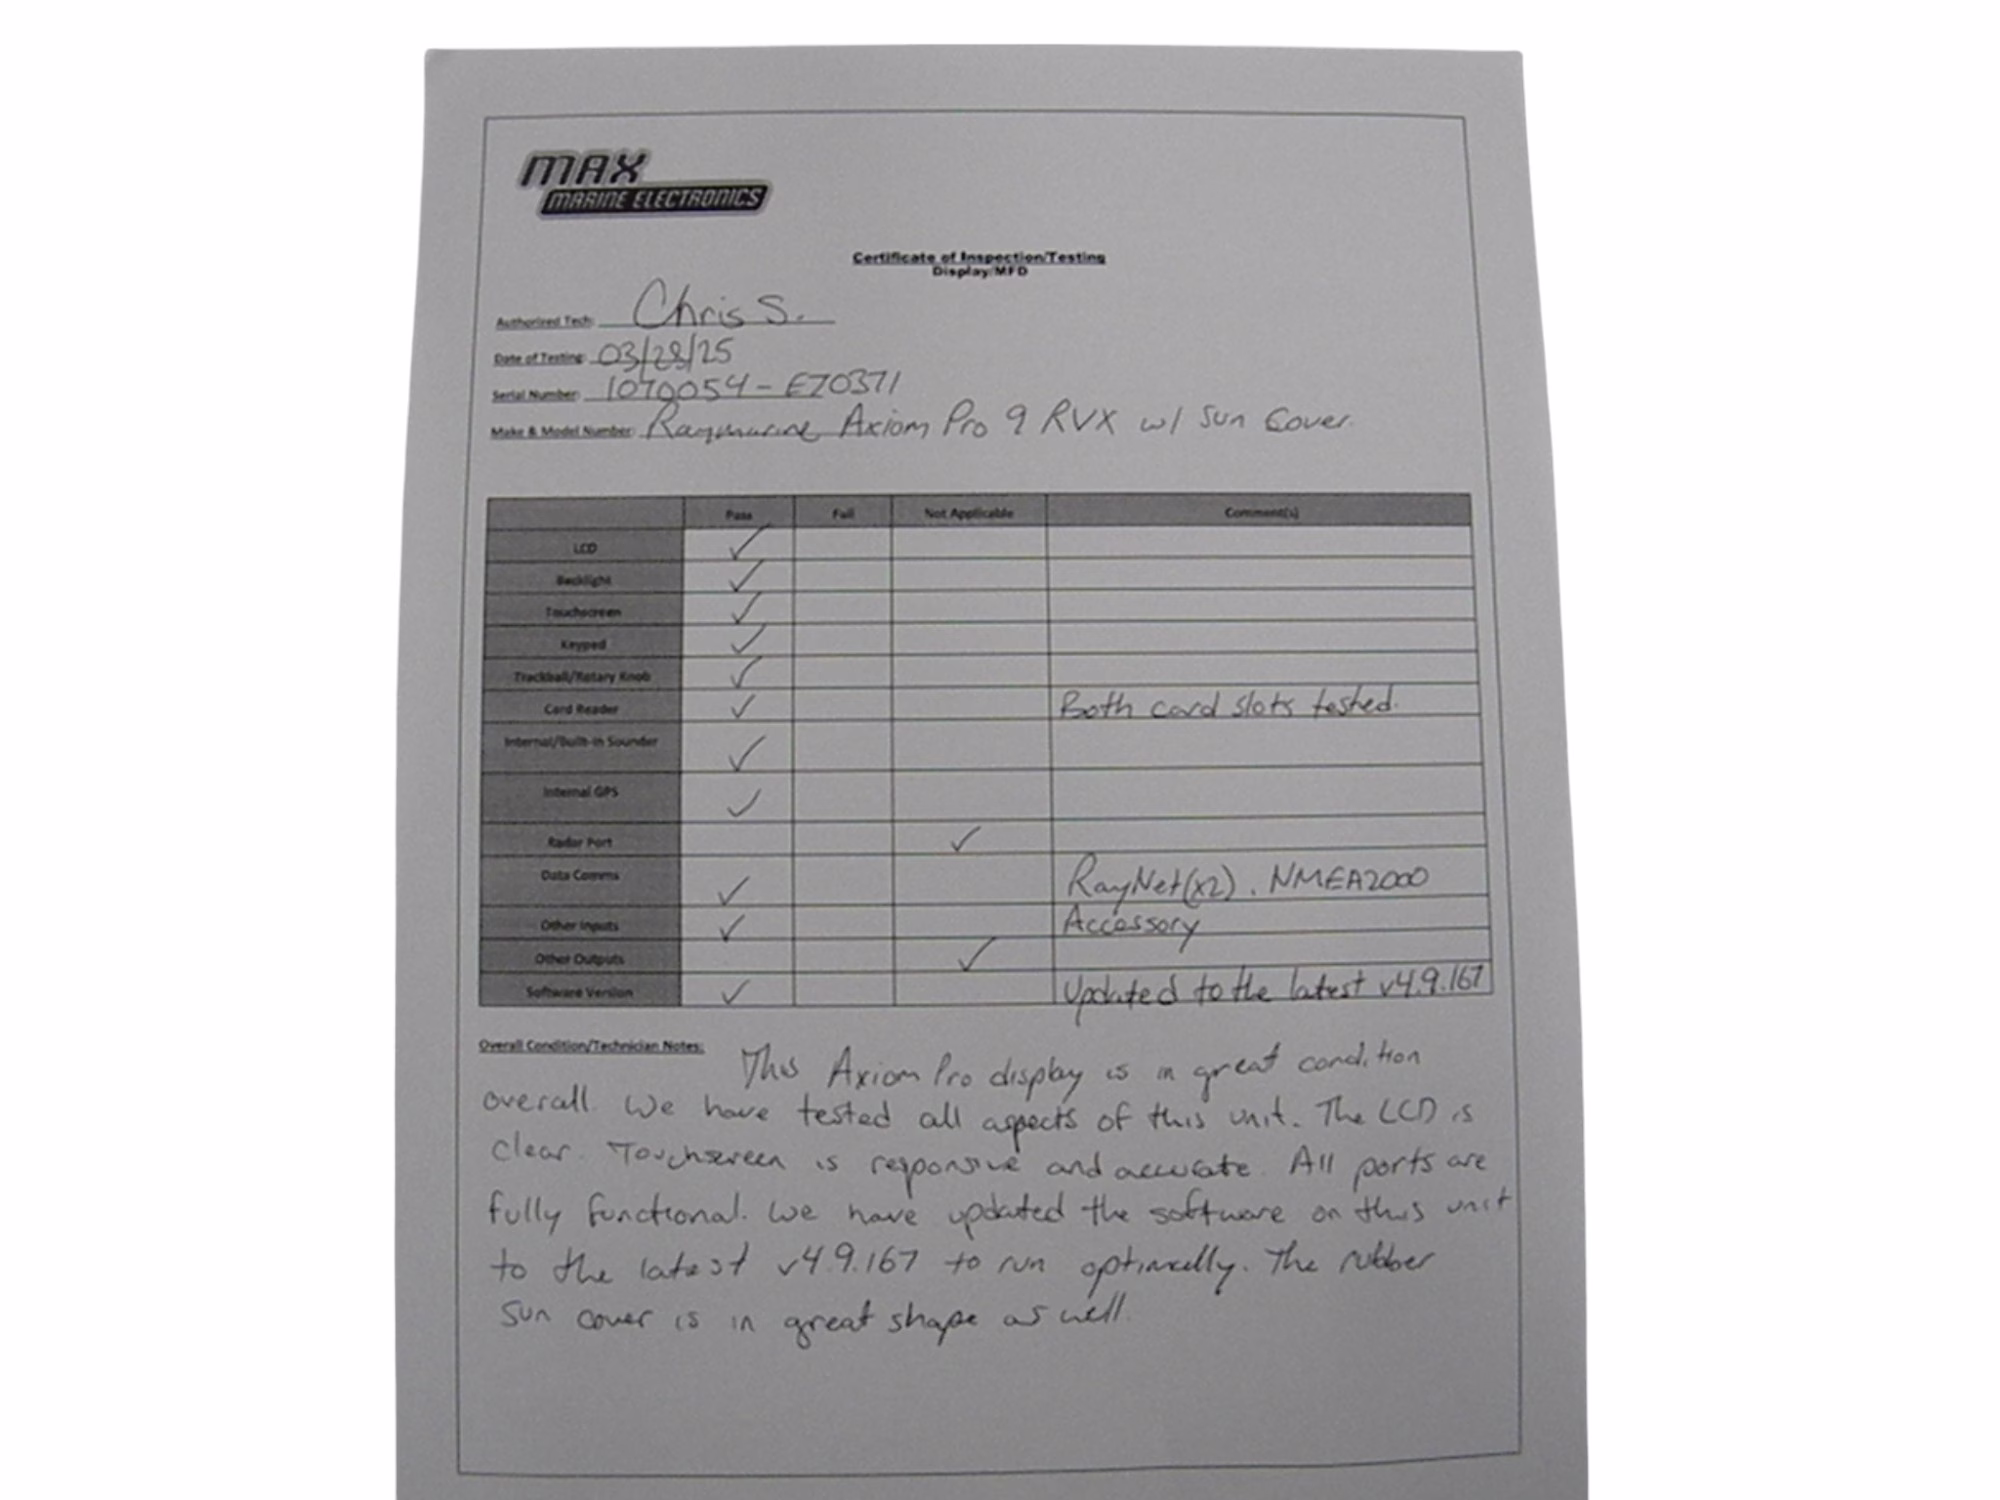 MAX
MARINE ELECTRONICS
Certificate of Inspection/Testing
Display/MFD
Authorized Tech: Chris S.
Date of Testing: 03/28/25
Serial Number: 1070054-E70371
Make & Model Number: Raymarine Axiom Pro 9 RVX w/ Sun Cover.
Pass Fail Not Applicable Comment(s)
LCD ✓
Backlight ✓
Touchscreen ✓
Keypad ✓
Trackball/Rotary Knob ✓
Card Reader ✓ Both card slots tested.
Internal/Built-in Sounder ✓
Internal GPS ✓
Radar Port ✓
Data Comms ✓ RayNet(x2), NMEA2000
Other Inputs ✓ Accessory
Other Outputs ✓
Software Version ✓ Updated to the latest v4.9.167
Overall Condition/Technician Notes: This Axiom Pro display is in great condition
overall. We have tested all aspects of this unit. The LCD is
clear. Touchscreen is responsive and accurate. All ports are
fully functional. We have updated the software on this unit
to the latest v4.9.167 to run optimally. The rubber
sun cover is in great shape as well.